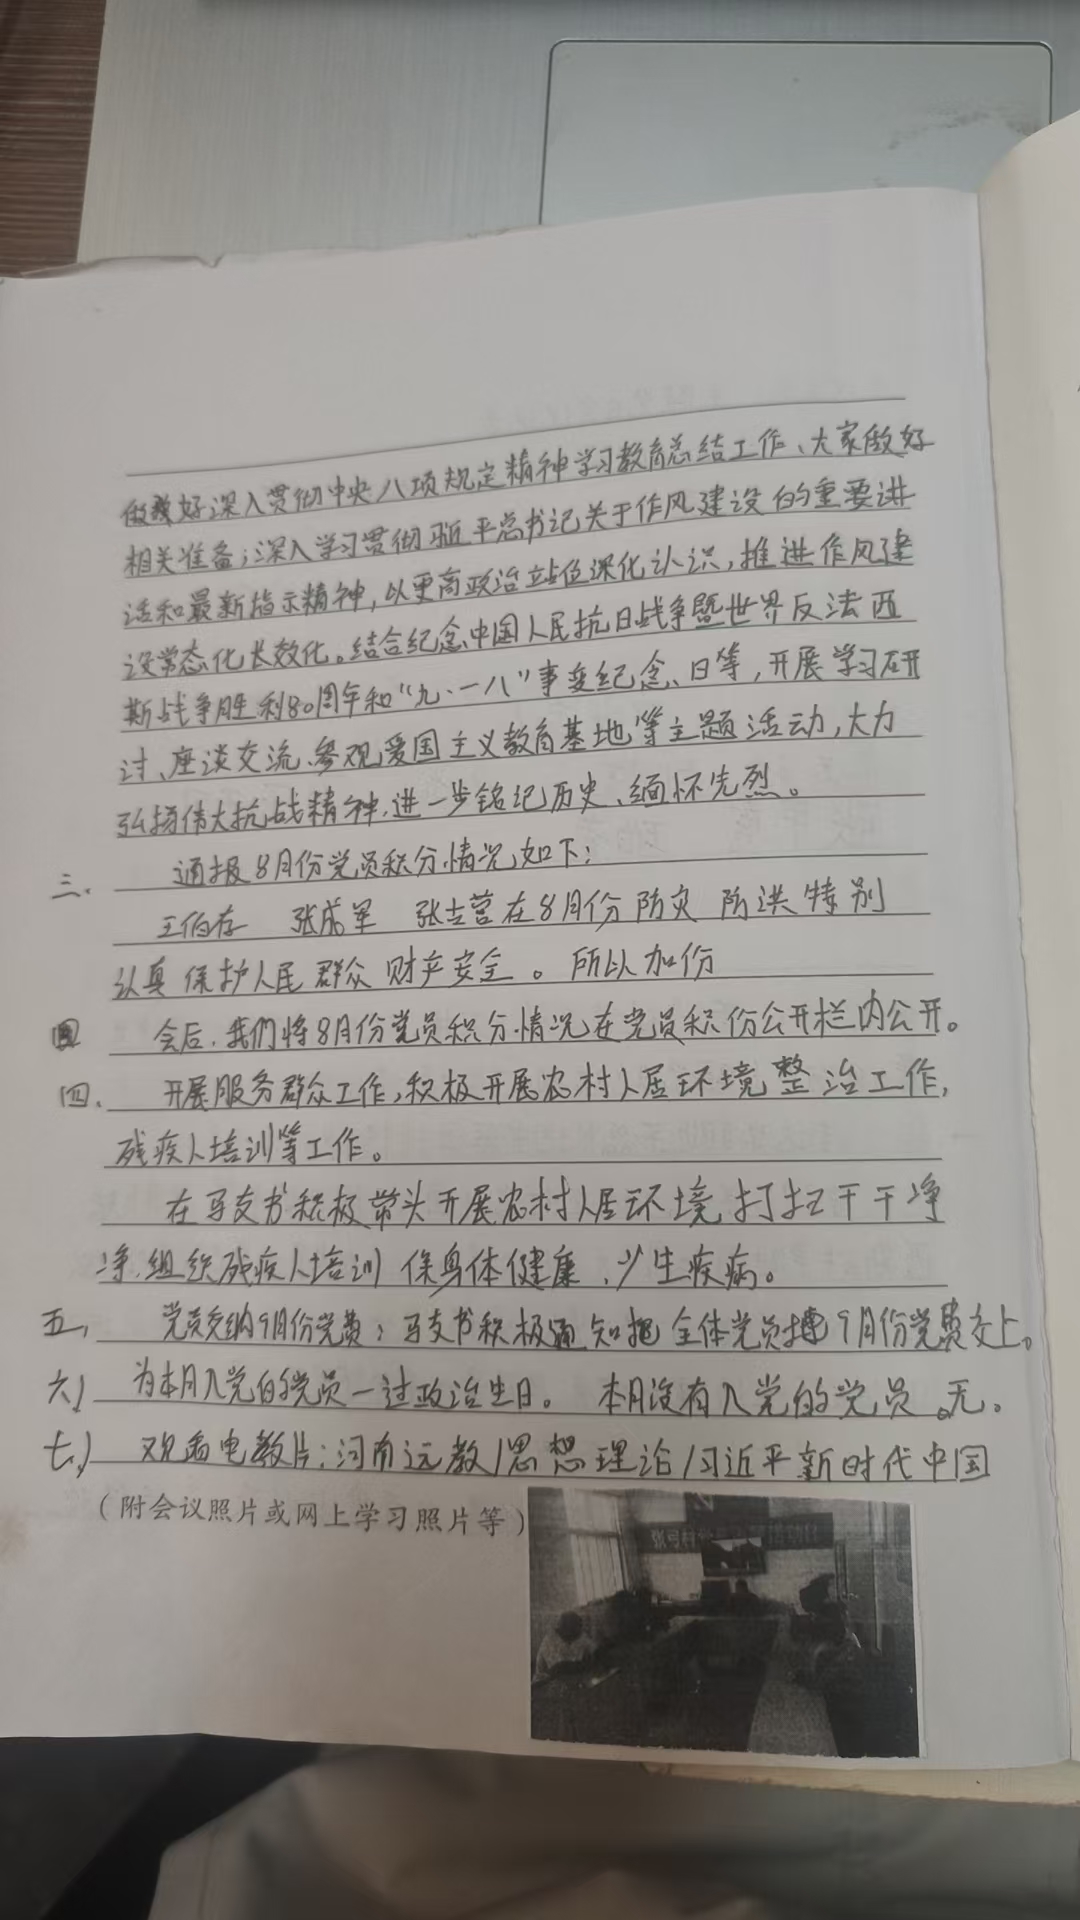 做好深入贯彻中央八项规定精神学习教育总结工作、大家做好
相关准备；深入学习贯彻习近平总书记关于作风建设的重要讲
话和最新指示精神，以更高政治站位深化认识，推进作风建
设常态化长效化。结合纪念中国人民抗日战争暨世界反法西
斯战争胜利80周年和“九·一八”事变纪念、日等，开展学习研
讨、座谈交流、参观爱国主义教育基地等主题活动，大力
弘扬伟大抗战精神，进一步铭记历史、缅怀先烈。
三、 通报8月份党员积分情况如下：
王伯存 张成军 张占营在8月份防灾 防洪特别
认真 保护人民群众 财产安全。所以加份
四 会后，我们将8月份党员积分情况在党员积份公开栏内公开。
四、 开展服务群众工作，积极开展农村人居环境整治工作，
残疾人培训等工作。
在马支书积极带头开展农村人居环境打扫干干净
净，组织残疾人培训 保身体健康、少生疾病。
五、 党员交纳9月份党费；马支书积极通知把全体党员9月份党费交上。
六） 为本月入党的党员一过政治生日。 本月没有入党的党员。无。
七） 观看电教片：河南远教/思想理论/习近平新时代中国
（附会议照片或网上学习照片等）